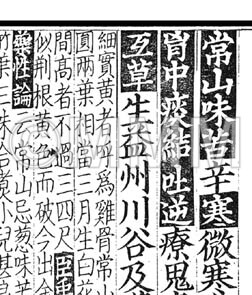 常山味苦辛寒微寒生
胷中痰結吐逆療鬼
互草生益州川谷及
細實黄者呼爲雞骨常山
圓兩葉相當三月生白花
間高者不過三四尺
似荆根黄
而破今出金
臣禹
藥性論云常山忌葱味苦
竹葉
小兒甚